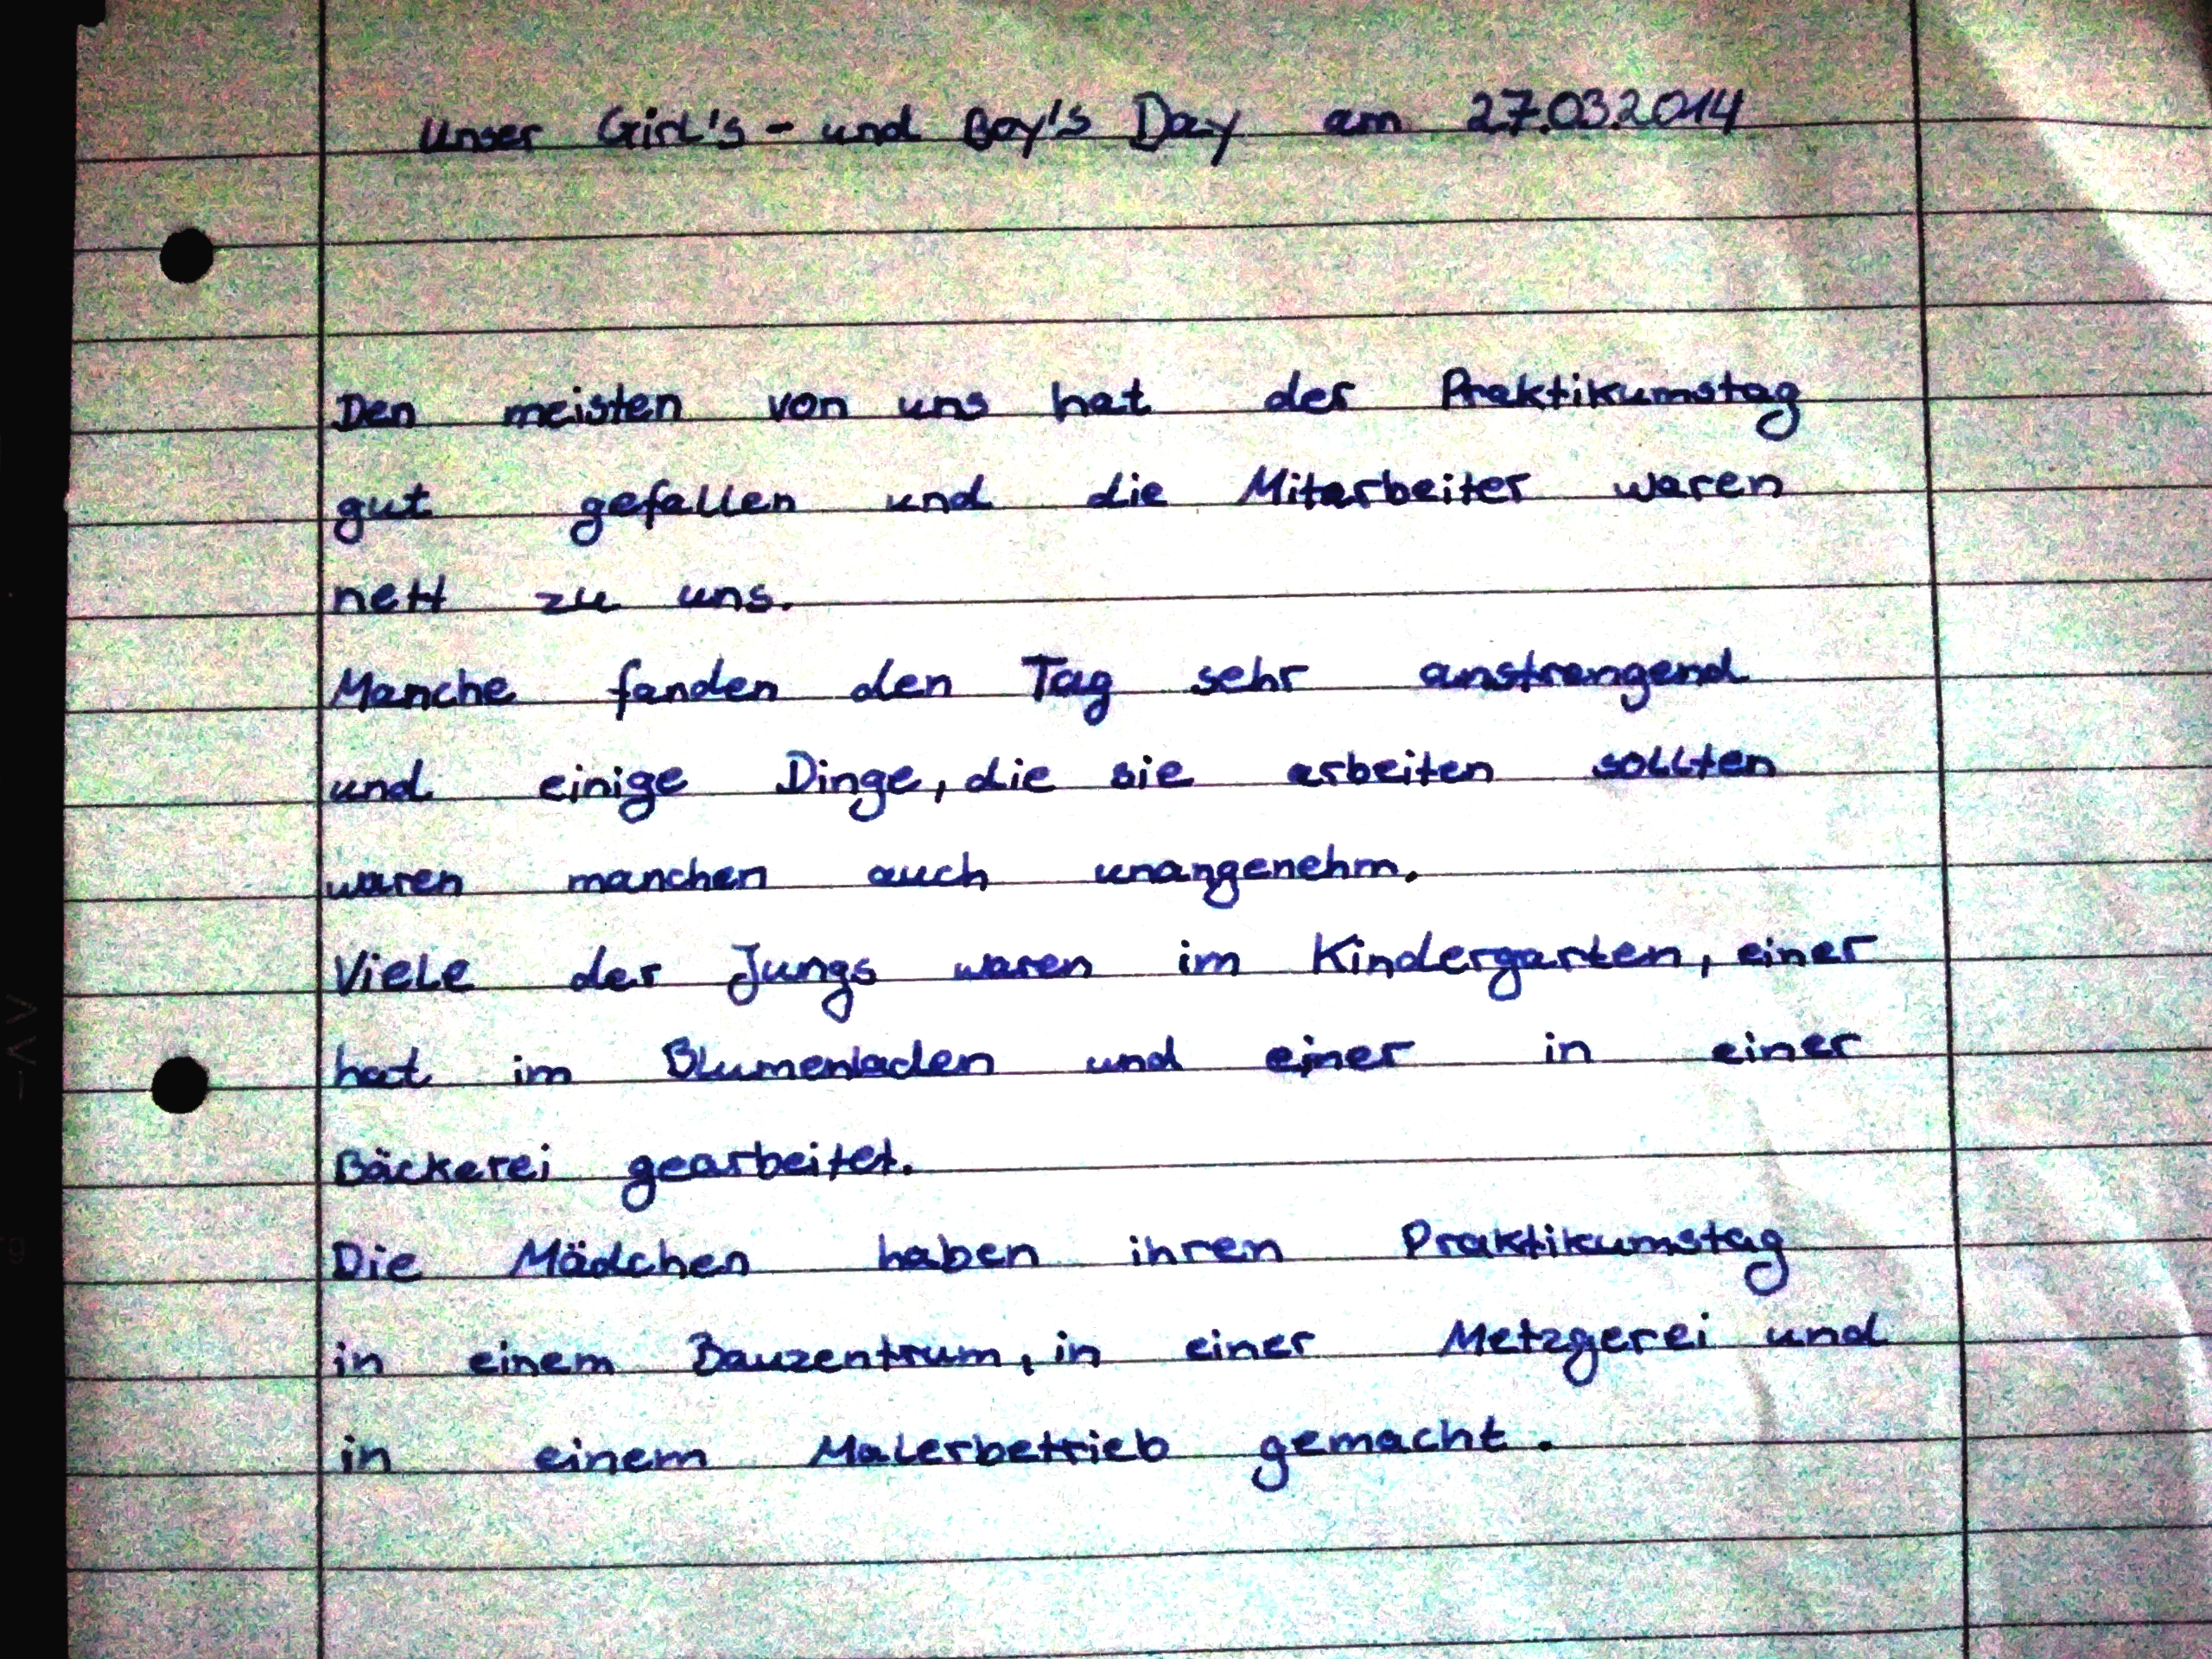 Unser Girl's - und Boy's Day am 27.03.2014
Den meisten von uns hat der Praktikumstag
gut gefallen und die Mitarbeiter waren
nett zu uns.
Manche fanden den Tag sehr anstrengend
und einige Dinge, die sie arbeiten sollten
waren manchen auch unangenehm.
Viele der Jungs waren im Kindergarten, einer
hat im Blumenladen und einer in einer
Bäckerei gearbeitet.
Die Mädchen haben ihren Praktikumstag
in einem Bauzentrum, in einer Metzgerei und
in einem Malerbetrieb gemacht.